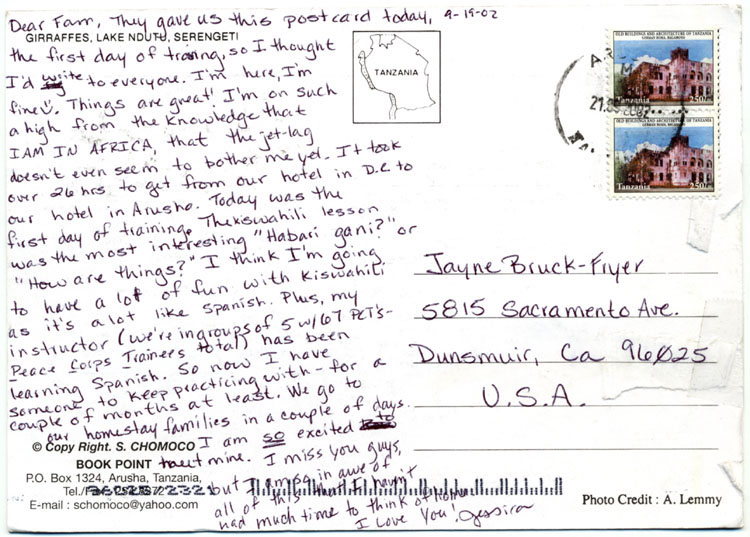 Dear Fam, They gave us this postcard today, 9-19-02
GIRRAFFES, LAKE NDUTU, SERENGETI
the first day of training, so I thought
I'd write to everyone. I'm here, I'm
fine. Things are great! I'm on such
a high from the knowledge that
I AM IN AFRICA, that the jet-lag
doesn't even seem to bother me yet. It took
over 26 hrs. to get from our hotel in D.C. to
our hotel in Arusha. Today was the
first day of training. The Kiswahili lesson
was the most interesting "Habari gani?" or
"How are things?" I think I'm going
to have a lot of fun with Kiswahili
as it's a lot like Spanish. Plus, my
instructor (we're in groups of 5 w/ 67 PCT's -
Peace Corps Trainees total) has been
learning Spanish. So now I have
someone to keep practicing with - for a
couple of months at least. We go to
our homestay families in a couple of days.
I am so excited
© Copy Right. S. CHOMOCO
BOOK POINT
meet mine. I miss you guys,
P.O. Box 1324, Arusha, Tanzania,
but I am so in awe of
Tel./
all of this that I haven't
E-mail : schomoco@yahoo.com
had much time to think of home.
I Love You! Jessica
TANZANIA
OLD BUILDINGS AND ARCHITECTURE OF TANZANIA
GERMAN BOMA, BAGAMOYO
Tanzania 250/-
OLD BUILDINGS AND ARCHITECTURE OF TANZANIA
GERMAN BOMA, BAGAMOYO
Tanzania 250/-
Jayne Bruck-Fryer
5815 Sacramento Ave.
Dunsmuir, Ca 96025
U.S.A.
Photo Credit : A. Lemmy